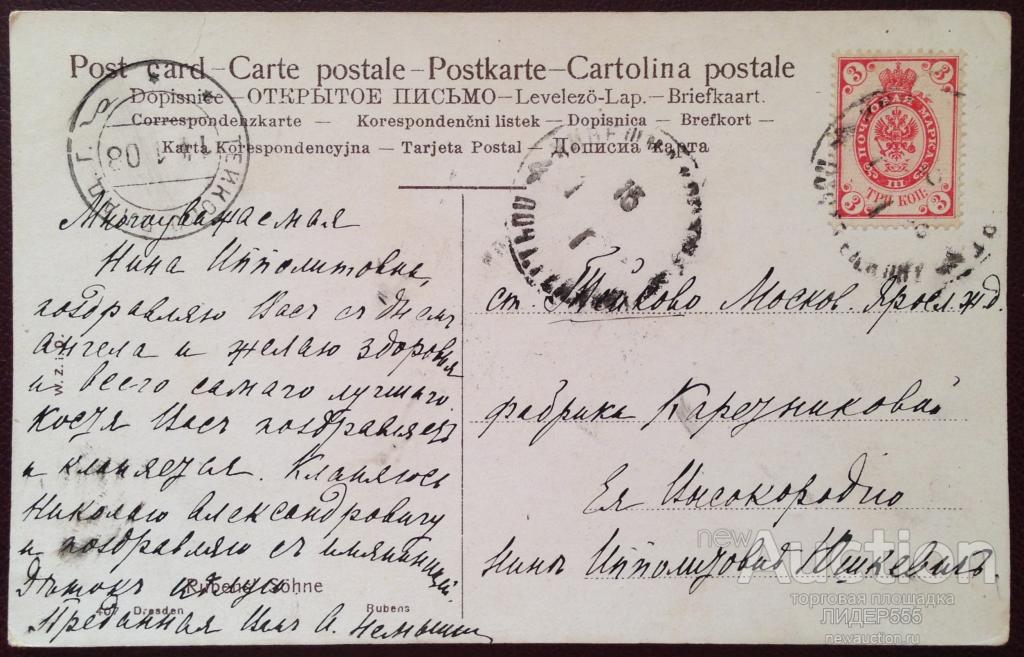 Post card – Carte postale – Postkarte – Cartolina postale
Dopisnice – ОТКРЫТОЕ ПИСЬМО – Levelezö-Lap. – Briefkaart.
Correspondenzkarte – Korespondenční listek – Dopisnica – Brefkort –
Karta Korespondencyjna – Tarjeta Postal – Дописна карта
3 3
ПОЧТОВАЯ МАРКА
III
3 3
ТРИ КОП.
ТЕЙКОВО
1 08
15
Многоуважаемая
Нина Ипполитовна,
поздравляю Васъ съ Днемъ
ангела и желаю здоровья
и всего самаго лучшаго.
Костя Васъ поздравляетъ
и кланяется. Кланяюсь
Николаю Александровичу
и поздравляю съ имянинницей.
Дѣтокъ цѣлую.
Преданная Вамъ А.
ст. Тейково Москов. Яросл. ж д.
фабрика Каретниковой
Ея Высокородію
Нинѣ Ипполитовнѣ Юшкевичъ
W.Z.i.D.
Rubens Söhne
407 Dresden
Rubens
newAuction
торговая площадка
ЛИДЕР555
newauction.ru